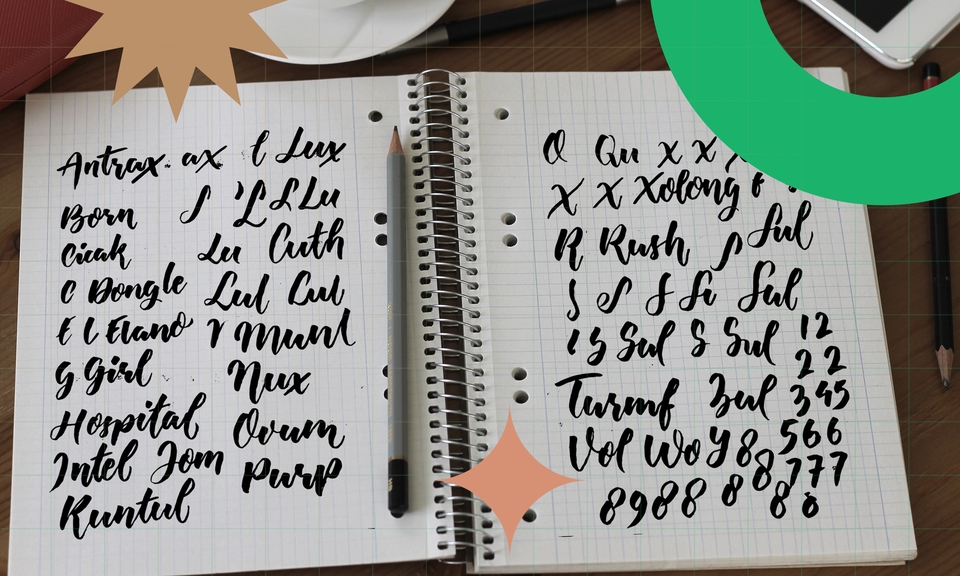 Antrax. ax l Lux
Born
L L Lu
Cicak
Lu Cuth
C Dongle
Lul Cul
E l Elano
r Munl
g Girl
Nux
Hospital
Ovum
Intel Jom
Purp
Runtul
Q Qu X X
X X Xolong
R Rush
Sul
S Su Sul
S Sul S Sul 12
22
Turmf Zul 345
Vol Wo y 8 566
8 777
8988 8 88